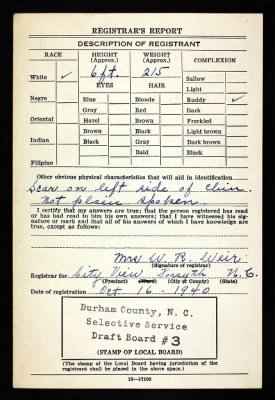 REGISTRAR'S REPORT
DESCRIPTION OF REGISTRANT
RACE HEIGHT (Approx.) WEIGHT (Approx.) COMPLEXION
White ✓ 6 ft. 215 Sallow
EYES HAIR Light
Negro Blue Blonde Ruddy ✓
Gray Red Dark
Oriental Hazel Brown Freckled
Brown Black Light brown
Indian Black Gray Dark brown
Bald Black
Filipino
Other obvious physical characteristics that will aid in identification
Scar on left side of chin.
not plain spoken.
I certify that my answers are true; that the person registered has read
or has had read to him his own answers; that I have witnessed his sig-
nature or mark and that all of his answers of which I have knowledge are
true, except as follows:
Mrs W. R. Weir
(Signature of registrar)
Registrar for City View Forsyth N.C.
(Precinct) (Ward) (City or County) (State)
Date of registration Oct. 16 - 1940
Durham County, N. C.
Selective Service
Draft Board #3
(STAMP OF LOCAL BOARD)
(The stamp of the Local Board having jurisdiction of the
registrant shall be placed in the above space.)
16-17105